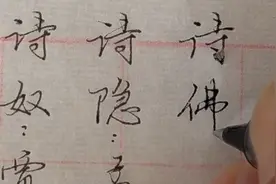 诗佛
诗隐：
诗奴：